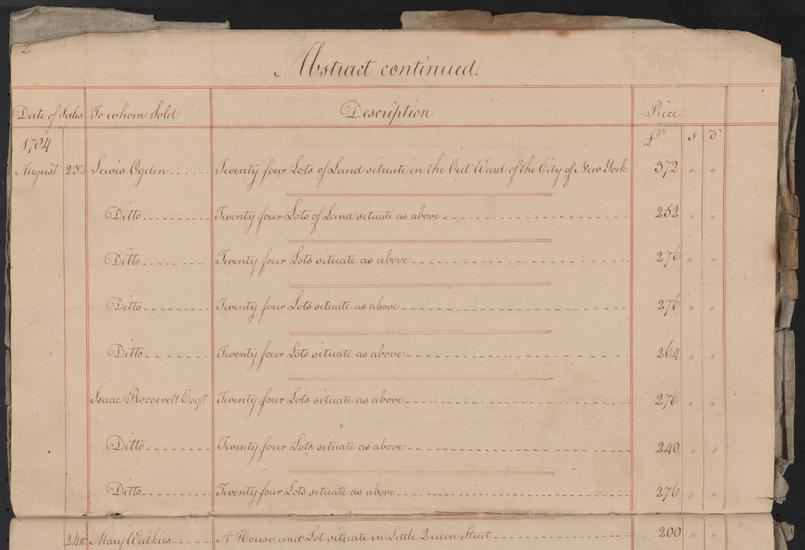 2
Abstract continued.
Date of Sales To whom Sold Description Price
1784 £ s d
August 23d Lewis Ogden Twenty four Lots of Land situate in the Out Ward of the City of New York 372 " "
Ditto Twenty four Lots of Land situate as above 252 " "
Ditto Twenty four Lots situate as above 276 " "
Ditto Twenty four Lots situate as above 276 " "
Ditto Twenty four Lots situate as above 264 " "
Isaac Roosevelt Esqr. Twenty four Lots situate as above 276 " "
Ditto Twenty four Lots situate as above 240 " "
Ditto Twenty four Lots situate as above 276 " "
24th Mary A House and Lot situate in Little Queen Street 200 " "